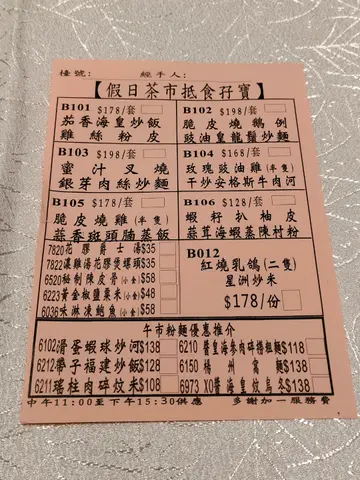 檯號: 經手人:
【假日茶市抵食孖寶】
B101 $178/套
茄香海皇炒飯
雞絲粉皮
B102 $198/套
脆皮燒鵝例
豉油皇龍鬚炒麵
B103 $198/套
蜜汁叉燒
銀芽肉絲炒麵
B104 $168/套
玫瑰豉油雞(半隻)
干炒安格斯牛肉河
B105 $178/套
脆皮燒雞(半隻)
蒜香斑頭腩蒸飯
B106 $128/套
蝦籽扒柚皮
蒜茸海蝦蒸陳村粉
7820花膠爵士湯$35
7822滾雞海花膠煲螺頭$35
6520秘制陳皮骨(小食)$58
6223黃金椒鹽粟米(小食)$48
6036味淋凍鮑魚(小食)$58
B012
紅燒乳鴿(二隻)
星洲炒米
$178/份
午市粉麵優惠推介
6102滑蛋蝦球炒河$138
6210蟹皇海參肉碎撈粗麵$118
6212帶子福建炒飯$128
6150楊州窩麵$138
6211瑤柱肉碎炆米$108
6973XO醬海皇炆烏冬$138
中午11:00至下午15:30供應 多謝加一服務費